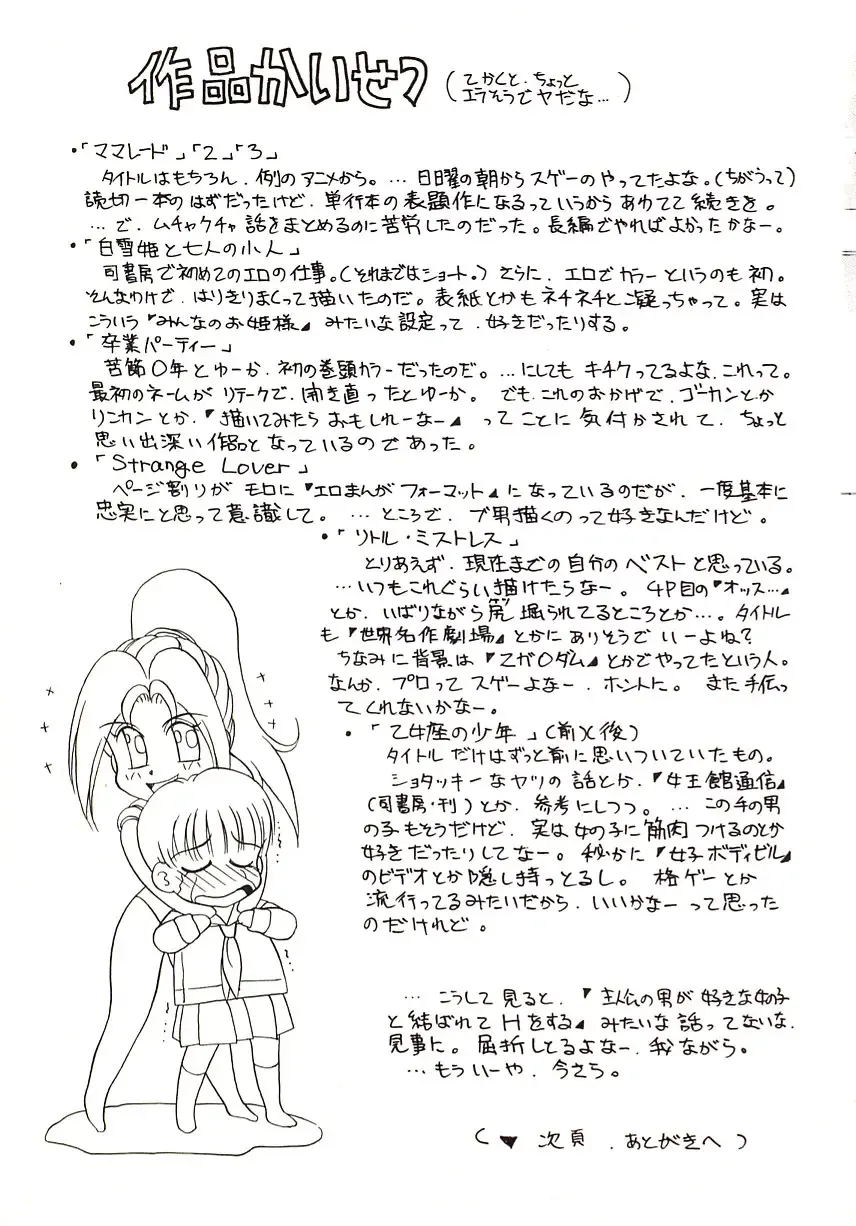 作品かいせつ
(てかくと、ちょっと
エラそうでヤだな…)
・「ママレード」「2」「3」
タイトルはもちろん、例のアニメから。…日曜の朝からスゲーのやってたよな。(ちがうって)
読切一本のはずだったけど、単行本の表題作になるっていうからあわてて続きを。
…で、ムチャクチャ話をまとめるのに苦労したのだった。長編でやればよかったかなー。
・「白雪姫と七人の小人」
司書房で初めてのエロの仕事。(それまではショート。)さらに、エロでカラーというのも初。
そんなわけで、はりきりまくって描いたのだ。表紙とかもネチネチと凝っちゃって。実は
こういう『みんなのお姫様』みたいな設定って、好きだったりする。
・「卒業パーティー」
苦節○年とゆーか、初の巻頭カラーだったのだ。…にしてもキチケってるよな、これって。
最初のネームがリテークで、開き直ったとゆーか。でも、これのおかげで、ゴーカンとか
リンカンとか、『描いてみたらおもしれーなー』ってことに気付かされて、ちょっと
思い出深い作品となっているのであった。
・「Strange Lover」
ページ割りがモロに『エロまんがフォーマット』になっているのだが、一度基本に
忠実にと思って意識して。…ところで、ブ男描くのって好きなんだけど。
・「リトル・ミストレス」
とりあえず、現在までの自分のベストと思っている。
…いつもこれぐらい描けたらなー。4P目の『オッス…』
とか、いばりながら尻掘られてるところとか…。タイトル
も『世界名作劇場』とかにありそうでいーよね?
ちなみに背景は『Zガ○ダム』とかでやってたという人。
なんか、プロってスゲーよなー、ホントに。また手伝っ
てくれないかなー。
・「乙女座の少年」(前)(後)
タイトルだけはずっと前に思いついていたもの。
ショタッキーなヤツの話とか、『女王館通信』
(司書房・刊)とか、参考にしつつ。…この手の男
の子もそうだけど、実は女の子に筋肉つけるのとか
好きだったりしてなー。秘かに『女子ボディビル』
のビデオとか隠し持っとるし。格ゲーとか
流行ってるみたいだから、いいかなーって思った
のだけれど。
…こうして見ると、『主人公の男が好きな女の子
と結ばれてHをする』みたいな話ってないな、
見事に。屈折してるよなー、我ながら。
…もういーや、今さら。
(▼次頁、あとがきへ)